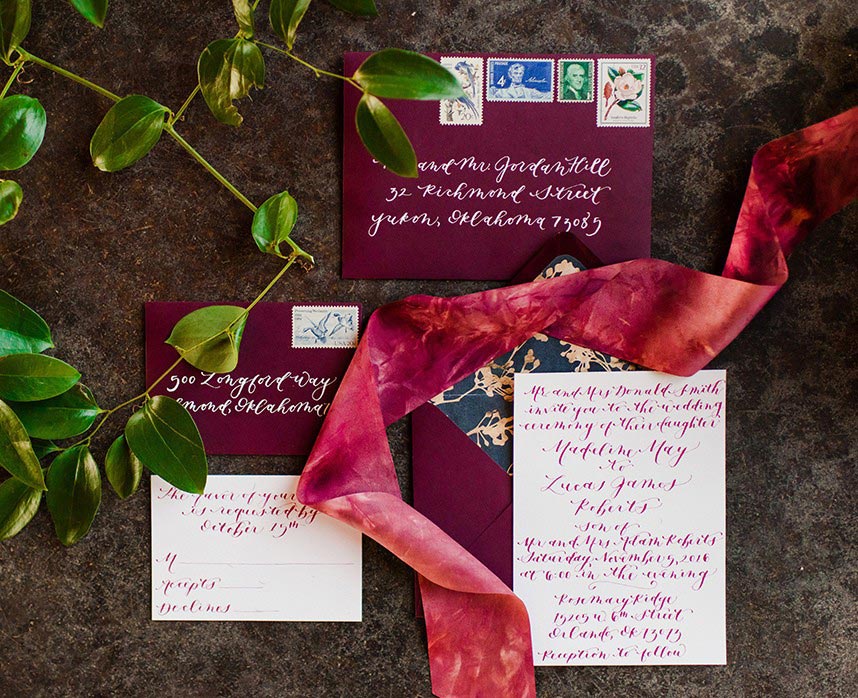 and Mr. Jordan Hill
32 Richmond Street
Yukon, Oklahoma 73085
4
500 Longford Way
mond, Oklahoma
The favor of your
is requested by
October 15th
M
Accepts
Declines
Mr and Mrs Donald Smith
invite you to the wedding
ceremony of their daughter
Madeline May
to
Lucas James
Roberts
son of
Mr and Mrs. Adam Roberts
Saturday November 5, 2016
at 6:00 in the evening
Rosemary Ridge
Street
Orlando, Ok 73073
Reception to follow